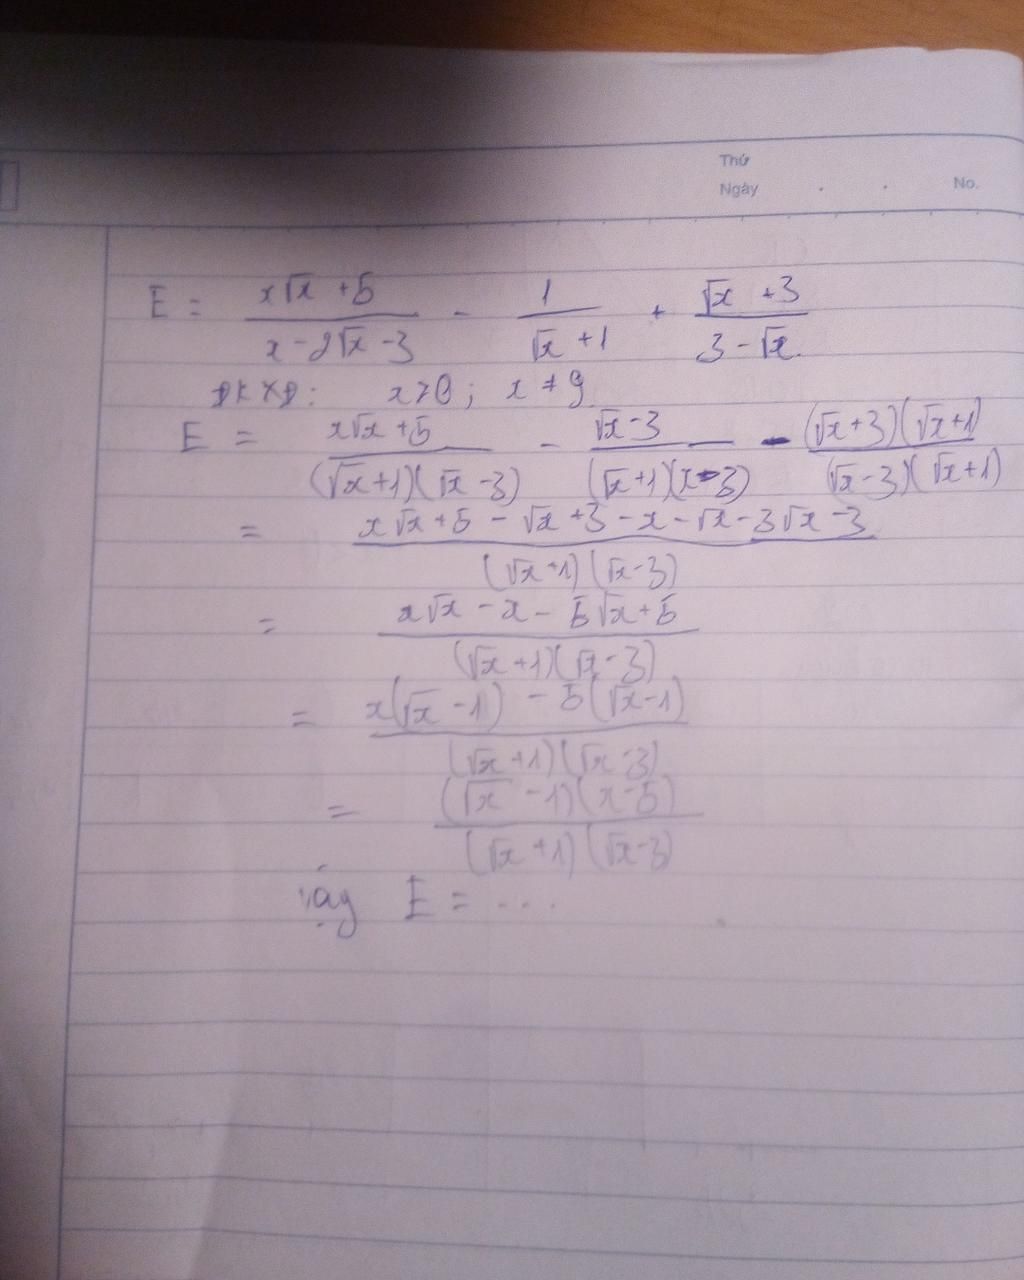 Thứ
Ngày . . No.
E = (x√x + 5)/(x - 2√x - 3) - 1/(√x + 1) + (√x + 3)/(3 - √x)
ĐKXĐ: x ≥ 0; x ≠ 9
E = (x√x + 5)/((√x + 1)(√x - 3)) - (√x - 3)/((√x + 1)(x - 3)) - ((√x + 3)(√x + 1))/((√x - 3)(√x + 1))
= (x√x + 5 - √x + 3 - x - √x - 3√x - 3)/((√x + 1)(√x - 3))
= (x√x - x - 5√x + 5)/((√x + 1)(√x - 3))
= (x(√x - 1) - 5(√x - 1))/((√x + 1)(√x - 3))
= ((√x - 1)(x - 5))/((√x + 1)(√x - 3))
Vậy E = ...